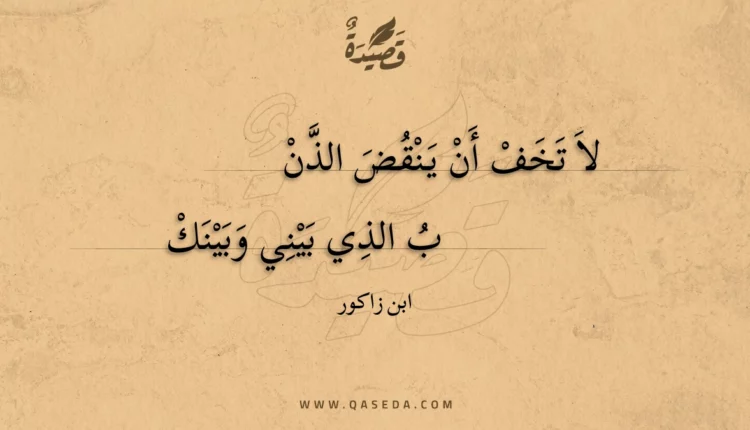 قَصِيْدَةٌ
لاَ تَخَفْ أَنْ يَنْقُضَ الذَّنْ
بُ الذِي بَيْنِي وَبَيْنَكْ
ابن زاكور
WWW.QASEDA.COM